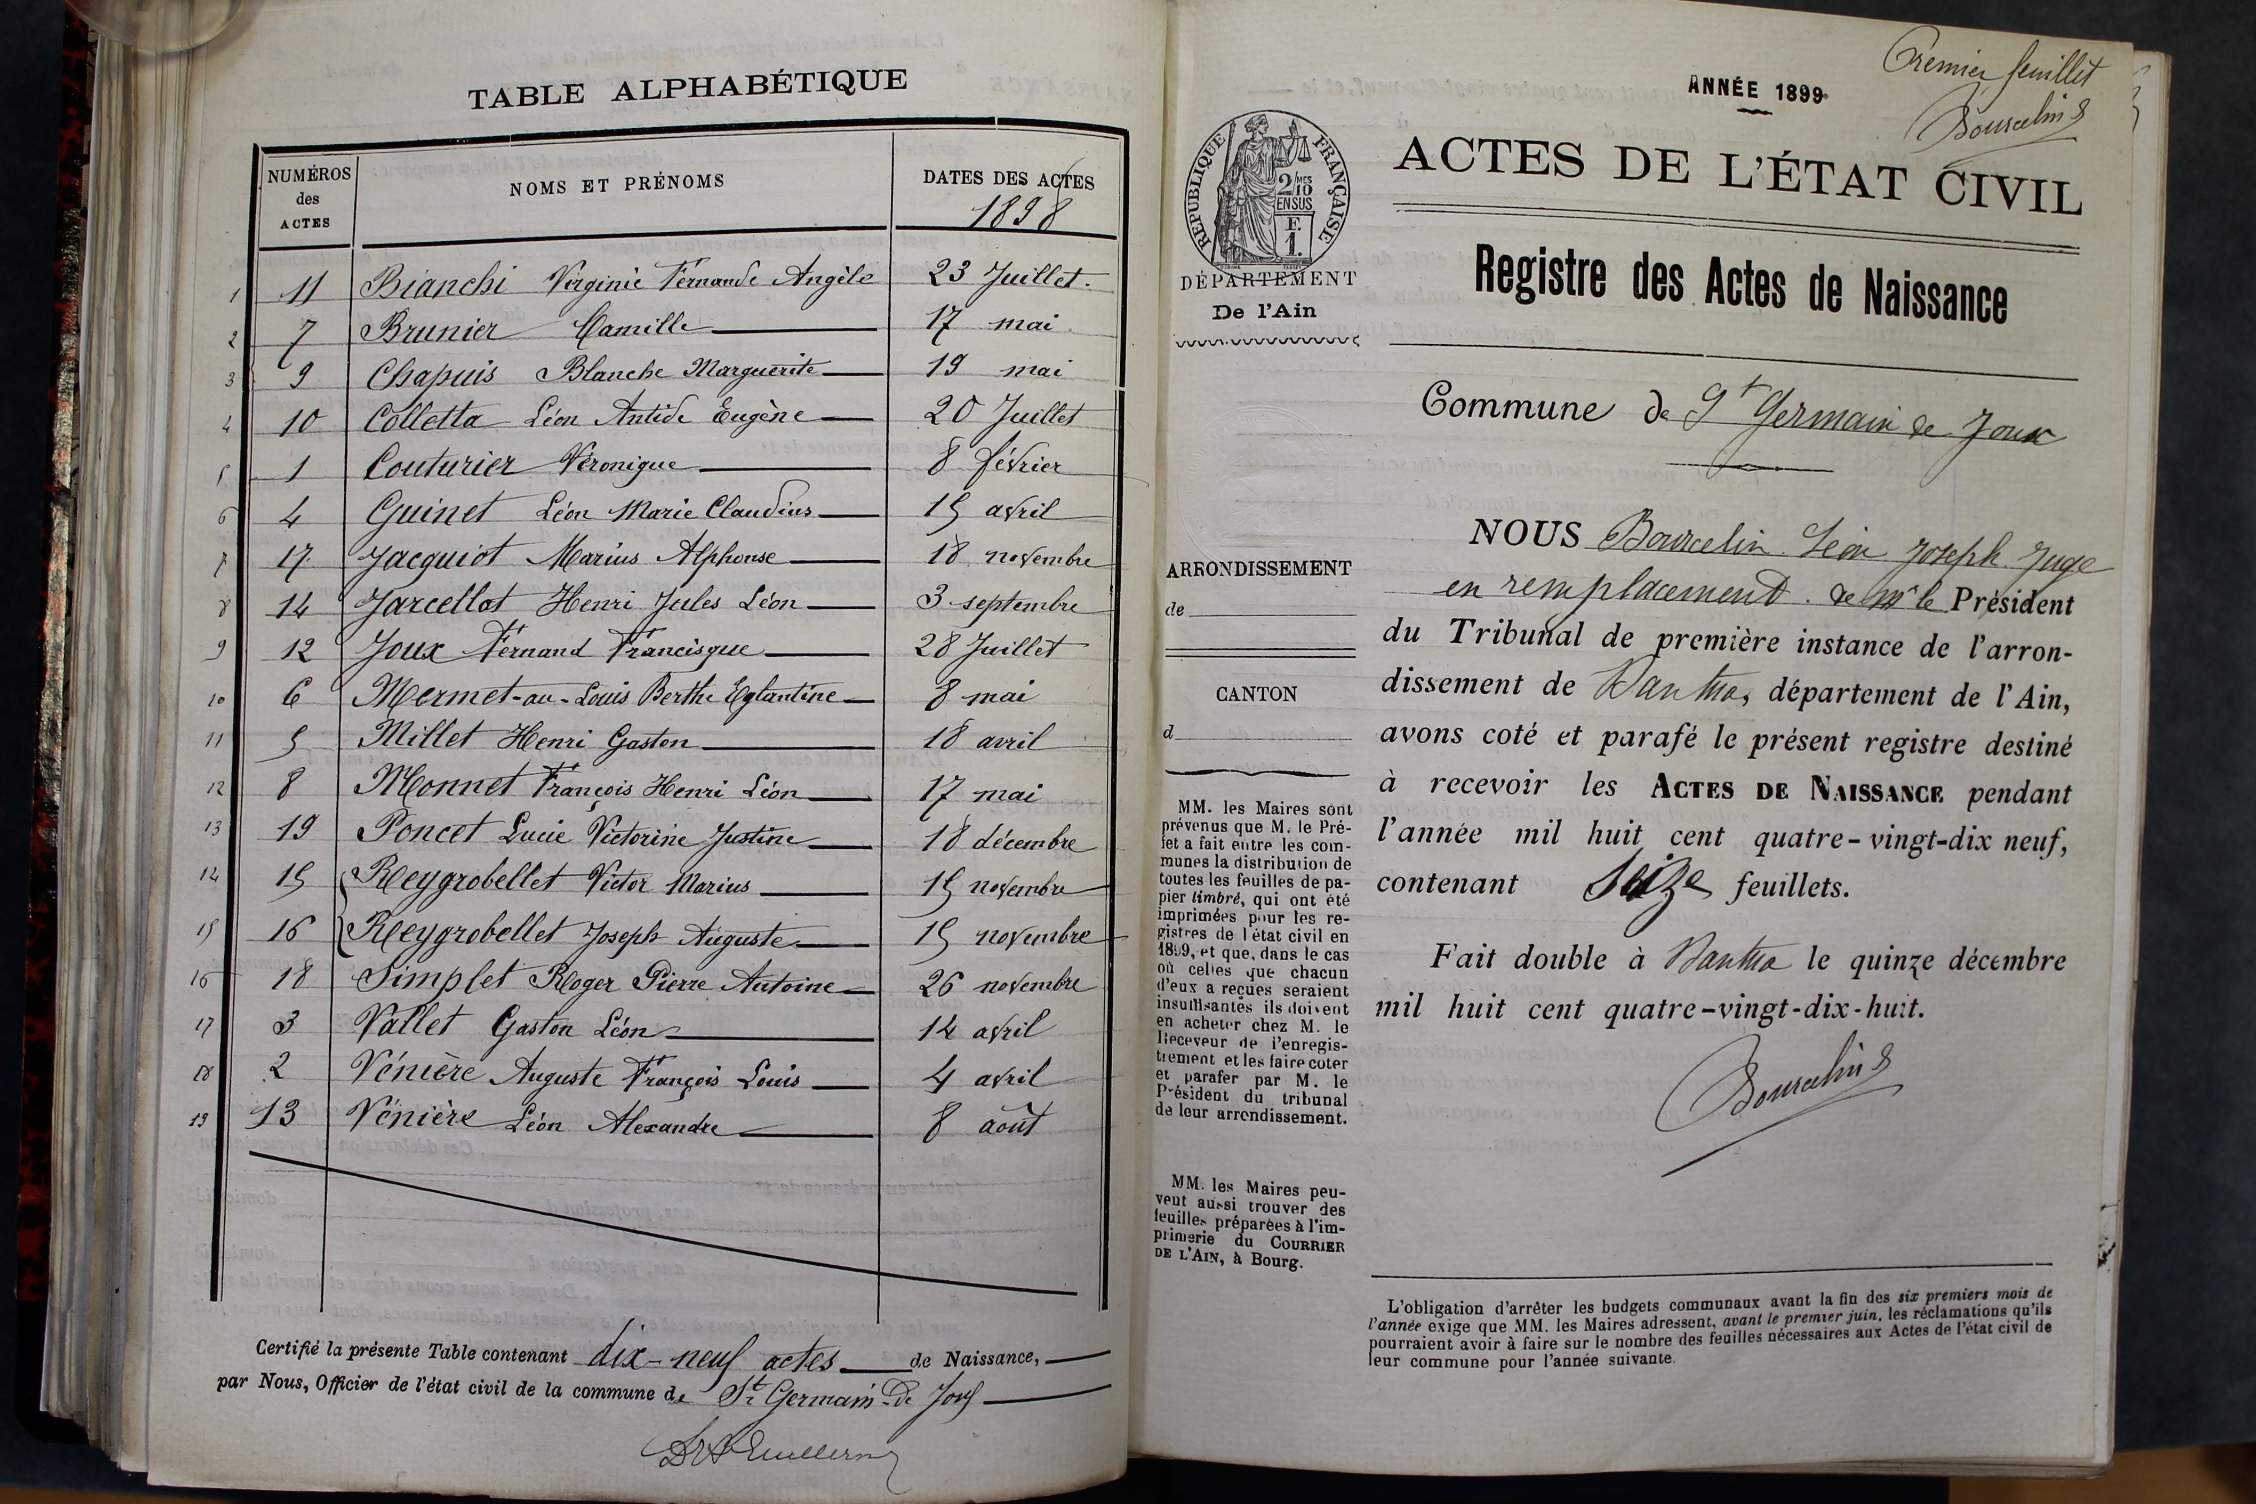 TABLE ALPHABÉTIQUE
NUMÉROS des ACTES
NOMS ET PRÉNOMS
DATES DES ACTES
1898
1 11 Bianchi Virginie Fernande Angèle 23 Juillet.
2 7 Brunier Camille 17 mai
3 9 Chapuis Blanche Marguerite 19 mai
4 10 Colletta Léon Antide Eugène 20 Juillet
5 1 Couturier Véronique 8 février
6 4 Guinet Léon Marie Claudius 15 avril
7 17 Jacquiot Marius Alphonse 18 novembre
8 14 Jarcellot Henri Jules Léon 3 septembre
9 12 Joux Fernand Francisque 28 Juillet
10 6 Mermet-au-Louis Berthe Eglantine 8 mai
11 5 Millet Henri Gaston 18 avril
12 8 Monnet François Henri Léon 17 mai
13 19 Poncet Lucie Victorine Justine 18 décembre
14 15 Reygrobellet Victor Marius 15 novembre
15 16 Reygrobellet Joseph Auguste 15 novembre
16 18 Simplet Roger Pierre Antoine 26 novembre
17 3 Vallet Gaston Léon 14 avril
18 2 Vénière Auguste François Louis 4 avril
19 13 Vénière Léon Alexandre 8 août
Certifié la présente Table contenant dix-neuf actes de Naissance,
par Nous, Officier de l'état civil de la commune de St Germain-de Joux
Premier feuillet
Bourcelin
ANNÉE 1899
ACTES DE L'ÉTAT CIVIL
RÉPUBLIQUE FRANÇAISE
2/10 MES
EN SUS
F.
1.
DÉPARTEMENT
De l'Ain
Registre des Actes de Naissance
Commune de St Germain de Joux
ARRONDISSEMENT
de
CANTON
d
MM. les Maires sont
prévenus que M. le Pré-
fet a fait entre les com-
munes la distribution de
toutes les feuilles de pa-
pier timbré, qui ont été
imprimées pour les re-
gistres de l'état civil en
1899, et que, dans le cas
où celles que chacun
d'eux a reçues seraient
insuffisantes ils doivent
en acheter chez M. le
Receveur de l'enregis-
trement et les faire coter
et parafer par M. le
Président du tribunal
de leur arrondissement.
MM. les Maires peu-
vent aussi trouver des
feuilles préparées à l'im-
primerie du COURRIER
DE L'AIN, à Bourg.
NOUS Bourcelin Léon Joseph Juge
en remplacement de Mr le Président
du Tribunal de première instance de l'arron-
dissement de Nantua, département de l'Ain,
avons coté et parafé le présent registre destiné
à recevoir les ACTES DE NAISSANCE pendant
l'année mil huit cent quatre-vingt-dix neuf,
contenant Seize feuillets.
Fait double à Nantua le quinze décembre
mil huit cent quatre-vingt-dix-huit.
Bourcelin
L'obligation d'arrêter les budgets communaux avant la fin des six premiers mois de
l'année exige que MM. les Maires adressent, avant le premier juin, les réclamations qu'ils
pourraient avoir à faire sur le nombre des feuilles nécessaires aux Actes de l'état civil de
leur commune pour l'année suivante.